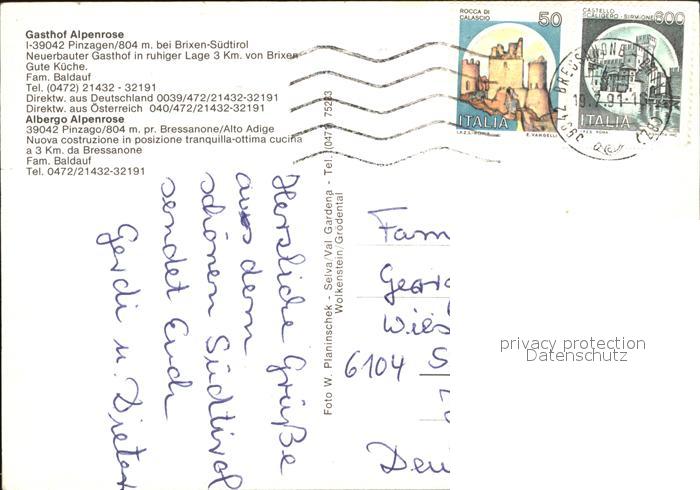 Gasthof Alpenrose
I-39042 Pinzagen/804 m. bei Brixen-Südtirol
Neuerbauter Gasthof in ruhiger Lage 3 Km. von Brixen
Gute Küche.
Fam. Baldauf
Tel. (0472) 21432 - 32191
Direktw. aus Deutschland 0039/472/21432-32191
Direktw. aus Österreich 040/472/21432-32191
Albergo Alpenrose
39042 Pinzago/804 m. pr. Bressanone/Alto Adige
Nuova costruzione in posizione tranquilla-ottima cucina
a 3 Km. da Bressanone
Fam. Baldauf
Tel. 0472/21432-32191
Herzliche Grüße
aus dem
schönen Südtirol
sendet Euch
Gerdi u. Dieter
Foto W. Planinschek - Selva/Val Gardena - Tel. (0471) 75293
Wolkenstein/Grödental
ROCCA DI
CALASCIO
50
ITALIA
I.P.Z.S. ROMA
E. VANGELLI
CASTELLO
SCALIGERO - SIRMIONE
600
ITALIA
Fam
Georg
Wies
6104 S
Deu
privacy protection
Datenschutz